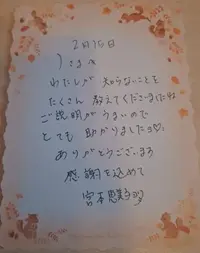 2月15日
さまへ
わたしが 知らないことを
たくさん 教えてくださいましたね
ご説明がうまいので
とても 助かりました♡
ありがとうございます
感謝を込めて
宮本恵美子より